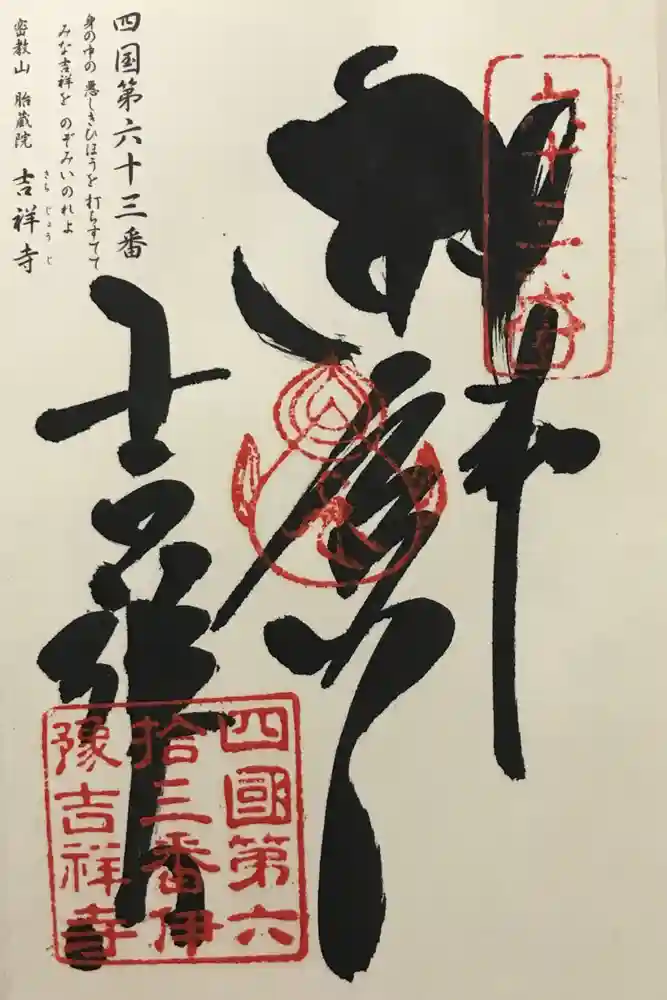 四国第六十三番
身の中の 悪しきひほうを 打ちすてて
みな吉祥を のぞみいのれよ
密教山 胎蔵院 吉祥寺
きち じょう じ
六十三番
吉祥寺
四國第六
拾三番伊
豫吉祥寺